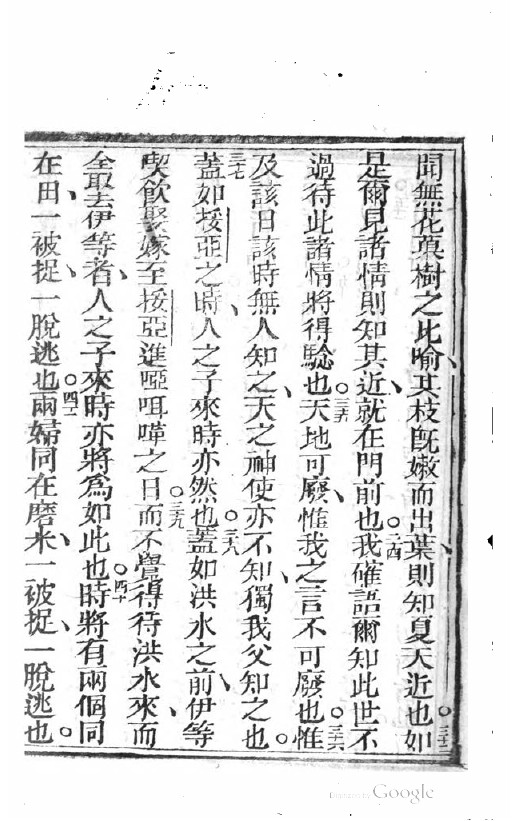 聞無花菓樹之比喻、其枝旣嫩而出葉、則知夏天近也。三三如
是爾見諸情則知其近、就在門前也。三四我確語爾知此世不
過待此諸情將得騐也。三五天地可廢、惟我之言不可廢也。三六惟
及該日該時無人知之、天之神使亦不知、獨我父知之也。
三七蓋如挼亞之時、人之子來時亦然也。三八蓋如洪水之前、伊等
喫飲娶嫁至挼亞進㗒咡嘩之日、三九而不覺得待洪水來、而
全取去伊等者、人之子來時亦將爲如此也。四十時將有兩個同
在田、一被捉、一脫逃也。四一兩婦同在磨米、一被捉、一脫逃也。
Digitized by Google